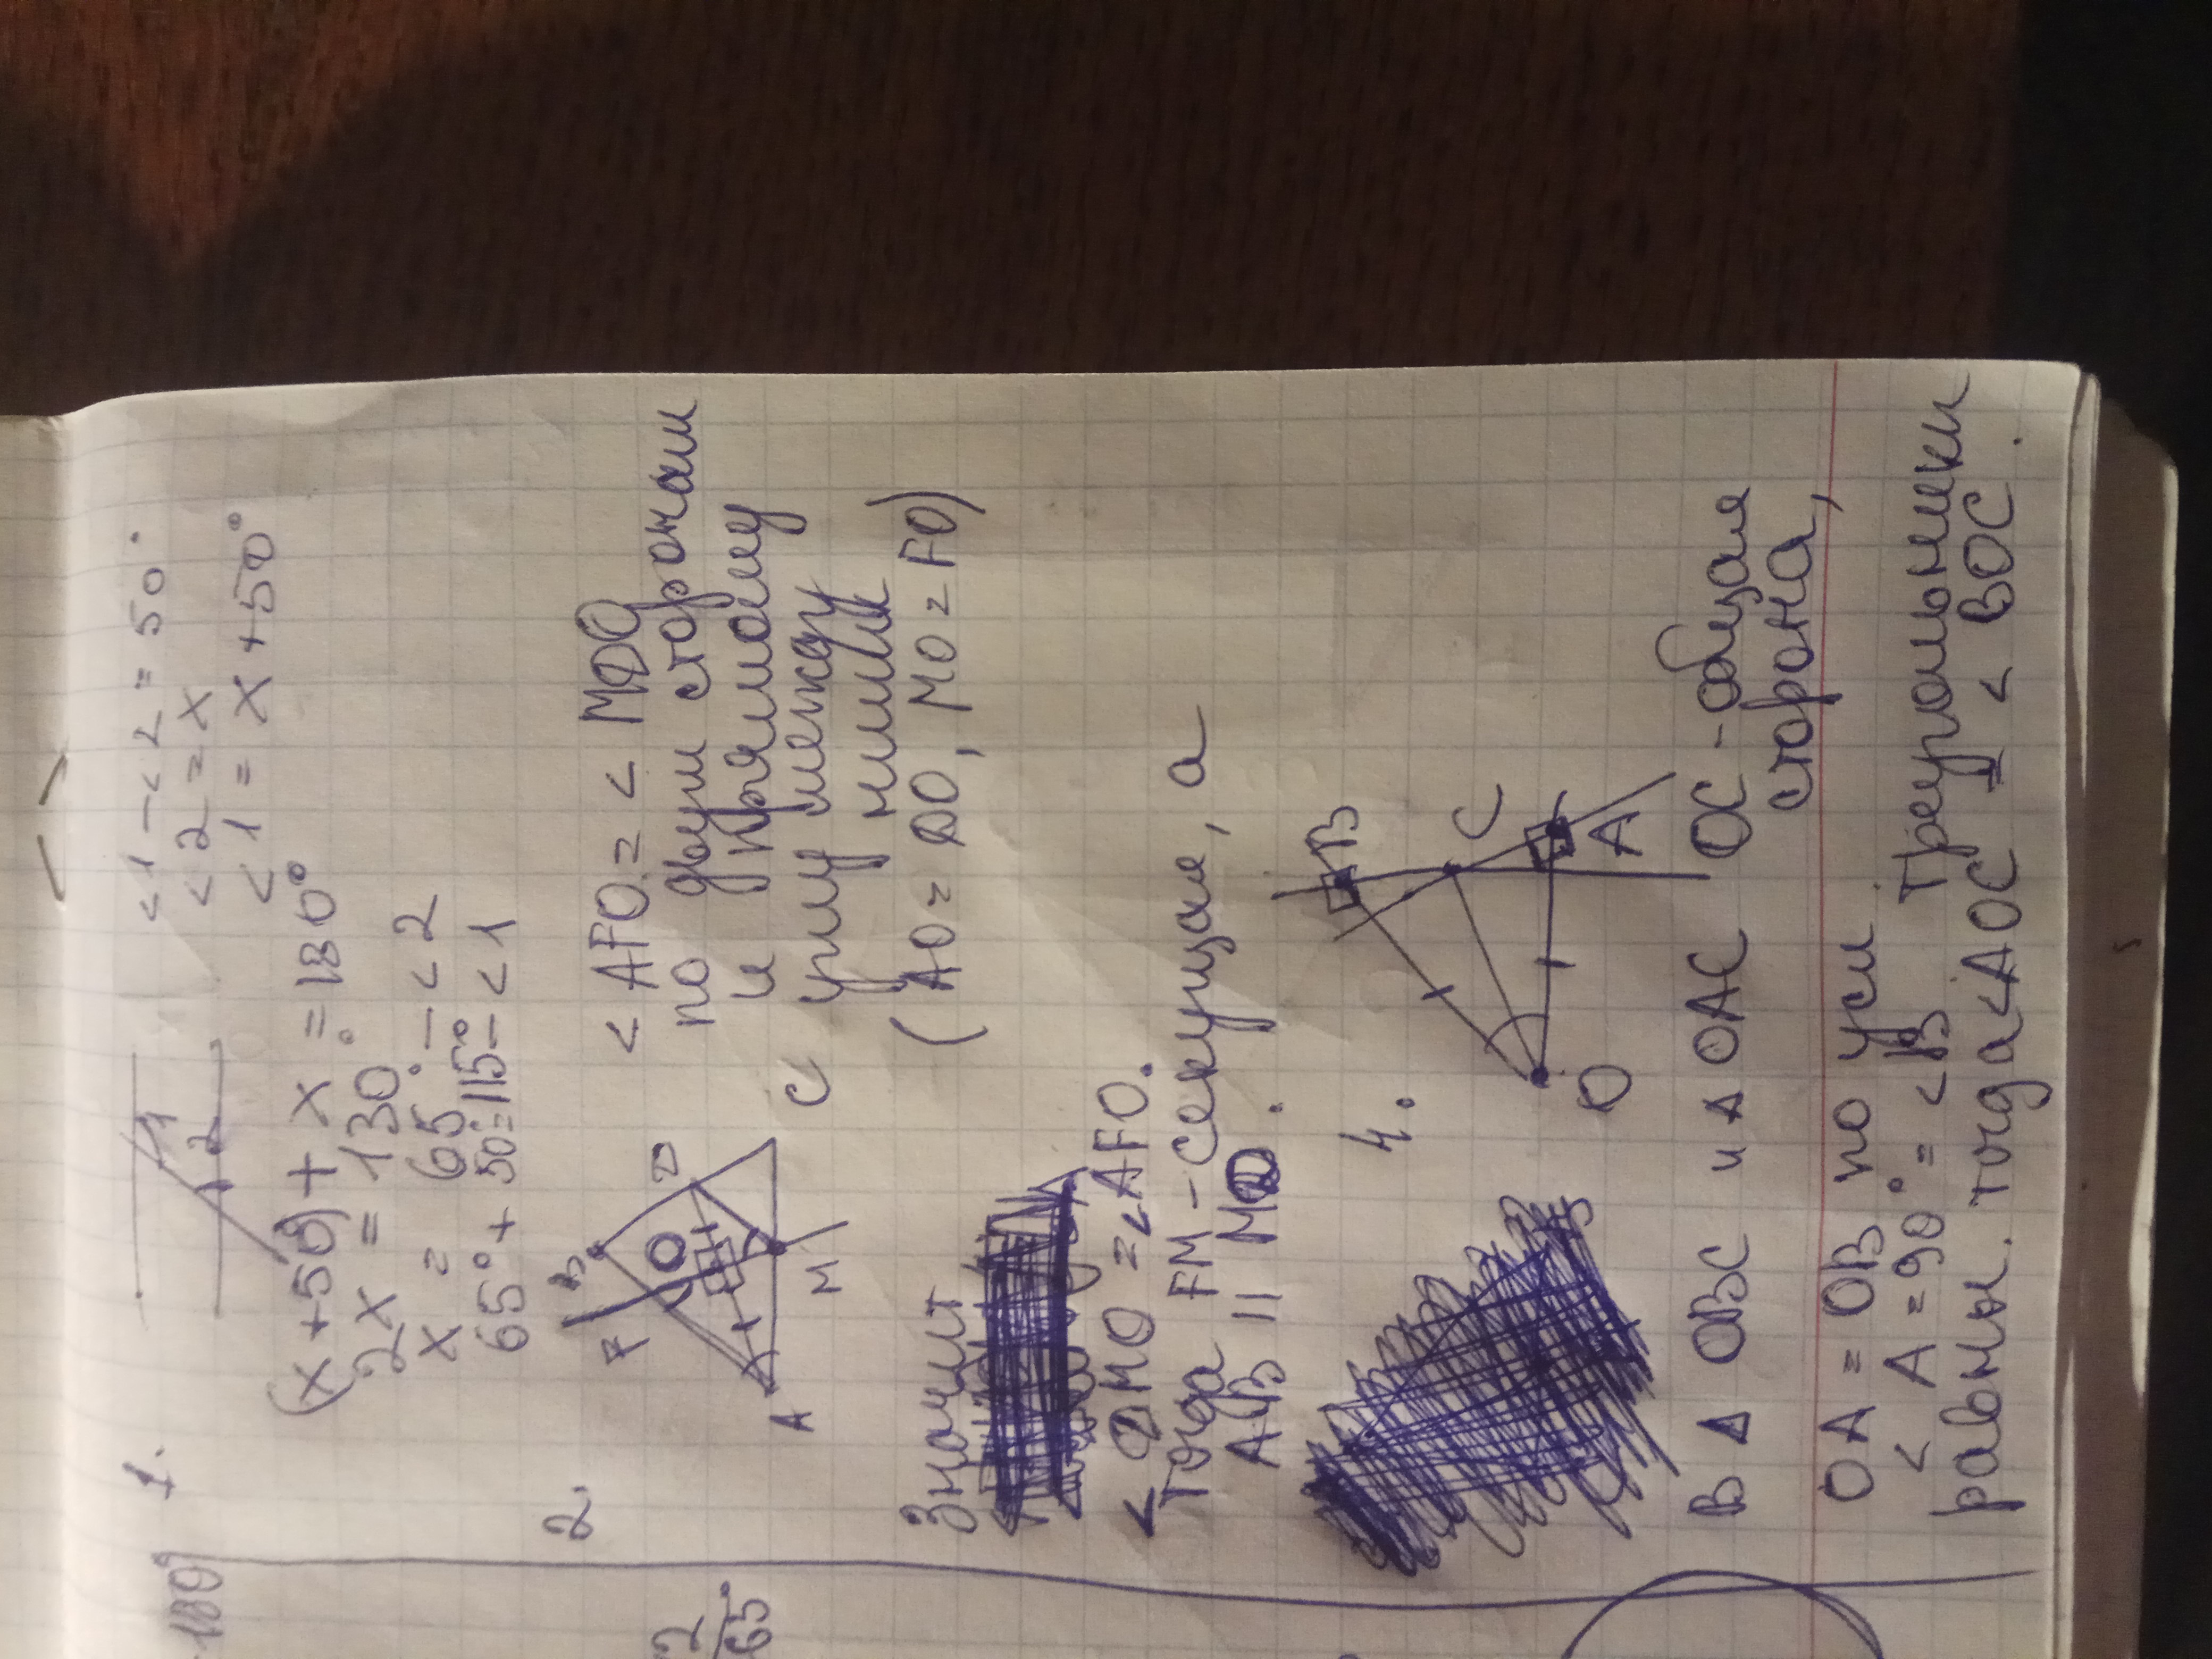 180°
2
65°
1.
1
2
<1 - <2 = 50°
<2 = x
<1 = x + 50°
(x + 50°) + x = 180°
2x = 130°
x = 65° - <2
65° + 50° = 115° - <1
2.
B
F
O
D
A
M
C
<AFO = < MDO
по двум сторонам
и прямому
углу между
ними
(AO = DO, MO = FO)
Значит
< DMO = <AFO.
Тогда FM - секущая, а
AB || MD.
4.
B
C
A
O
В Δ OBC и Δ OAC OC - общая
сторона,
OA = OB по усл.
< A = 90° = <B Треугольники
равны. тогда <AOC = < BOC.